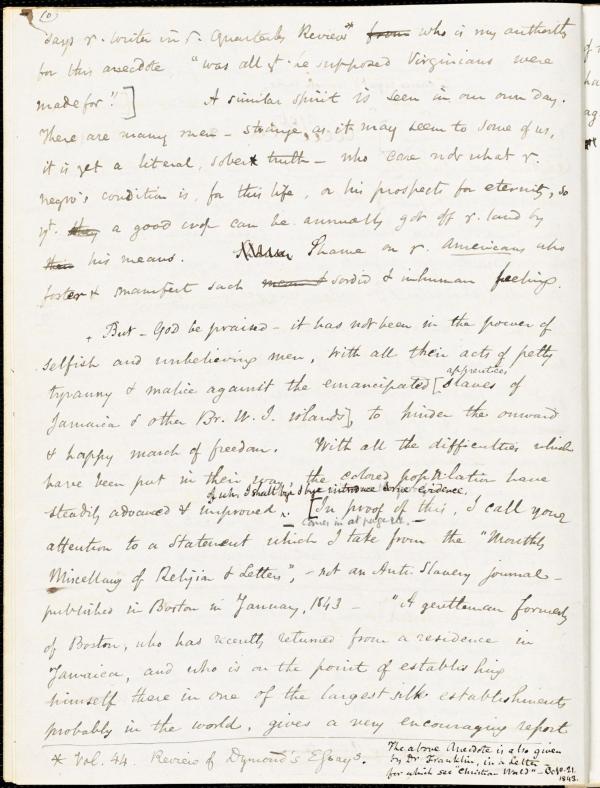 (6)
says ye. writer in ye. Quarterly Review* from who is my authority
for this anecdote "was all yt. he supposed Virginians were
made for!"] A similar spirit is seen in our own day.
There are many men – strange, as it may seem to some of us,
it is yet a literal, sober truth – who care not what ye.
negro's condition is, for this life, or his prospects for eternity, so
yt. they a good crop can be annually got off ye. land by
their his means. Shame on ye. Americans who
foster & manifest such sordid & inhuman feeling.
But – God be praised – it has not been in the power of
selfish and unbelieving men, with all their acts of petty
apprentices
tyranny & malice against the emancipated [slaves of
Jamaica & other Br. W. I. islands], to hinder the onward
& happy march of freedom. With all the difficulties which
have been put in their way, the colored population have
of wh. I shall by & bye introduce some evidence.
steadily advanced & improved. [In proof of this, I call your
comes in at page
attention to a Statement which I take from the "Monthly
Miscellany of Religion & Letters", – not an Anti-Slavery journal –
published in Boston in January, 1843 – "A gentleman formerly
of Boston, who has recently returned from a residence in
Jamaica, and who is on the point of establishing
himself there in one of the largest silk establishments
probably in the world, gives a very encouraging report
* Vol. 44. Review of Dymond's Essays.
The above Anecdote is also given
by Dr. Franklin, in a letter
for which see "Christian World" – Oct. 21.
1843.